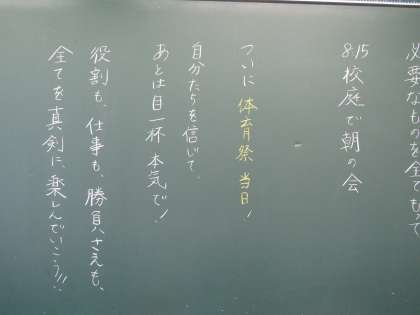 必要なものを全てもって
8:15 校庭で朝の会
ついに 体育祭 当日！
自分たちを信じて、
あとは目一杯 本気で！
役割も、仕事も、勝負さえも、
全てを真剣に、楽しんでいこう！！